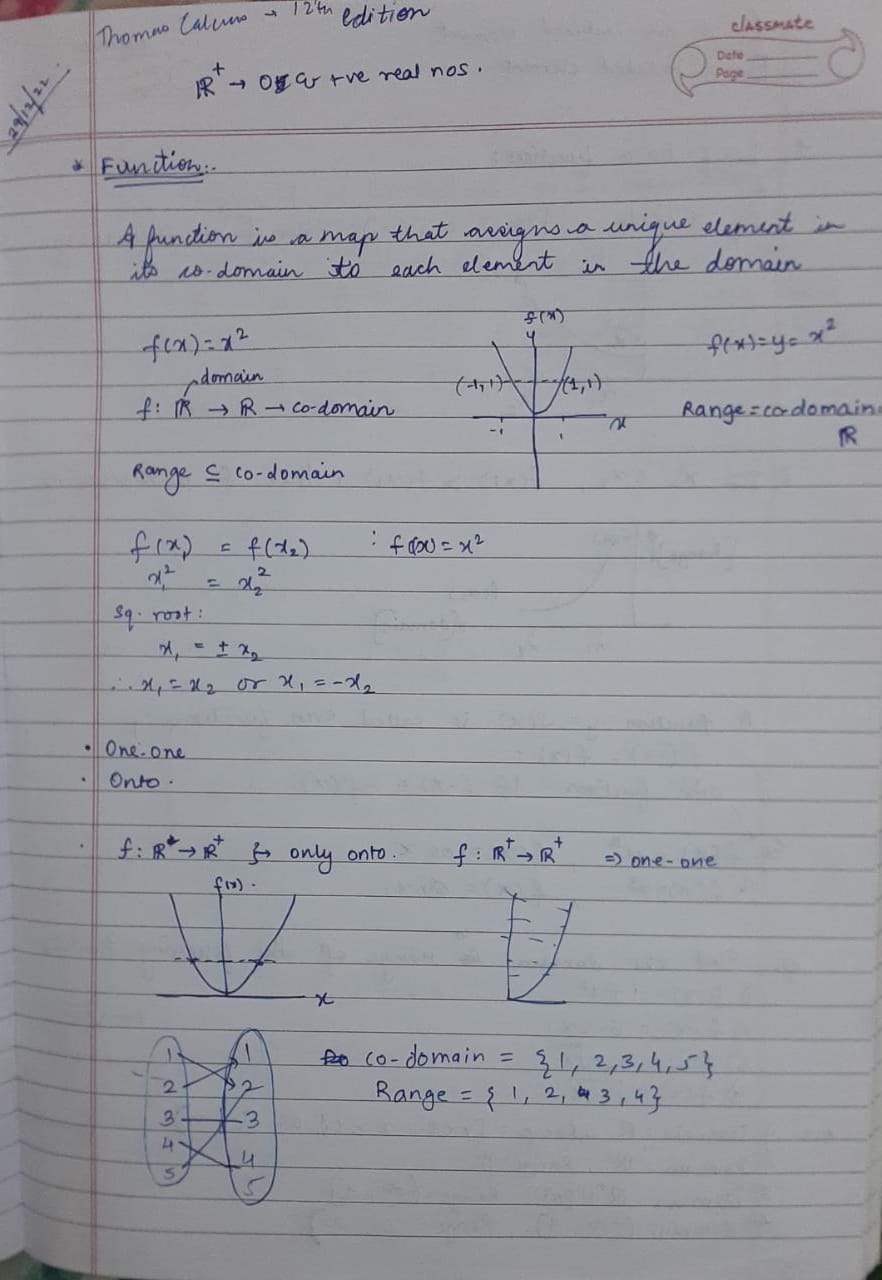 Thomas Calculus → 12th edition
classmate
Date
Page
29/12/22
ℝ⁺ → 0 & +ve real nos.
* Function:-
A function is a map that assigns a unique element in
its co-domain to each element in the domain
f(x)
y
f(x) = x²
f(x) = y = x²
(-1,1) (1,1)
domain
f: ℝ → ℝ → co-domain
x
-1 1
Range = co-domain =
ℝ
Range ⊆ co-domain
f(x₁) = f(x₂) : f(x) = x²
x₁² = x₂²
sq. root:
x₁ = ± x₂
∴ x₁ = x₂ or x₁ = -x₂
• One-one
• Onto.
• f: ℝ → ℝ⁺ → only onto. f: ℝ⁺ → ℝ⁺ ⇒ one-one
f(x).
x
1 1
2 2
3 3
4 4
5 5
co-domain = {1, 2, 3, 4, 5}
Range = {1, 2, 3, 4}